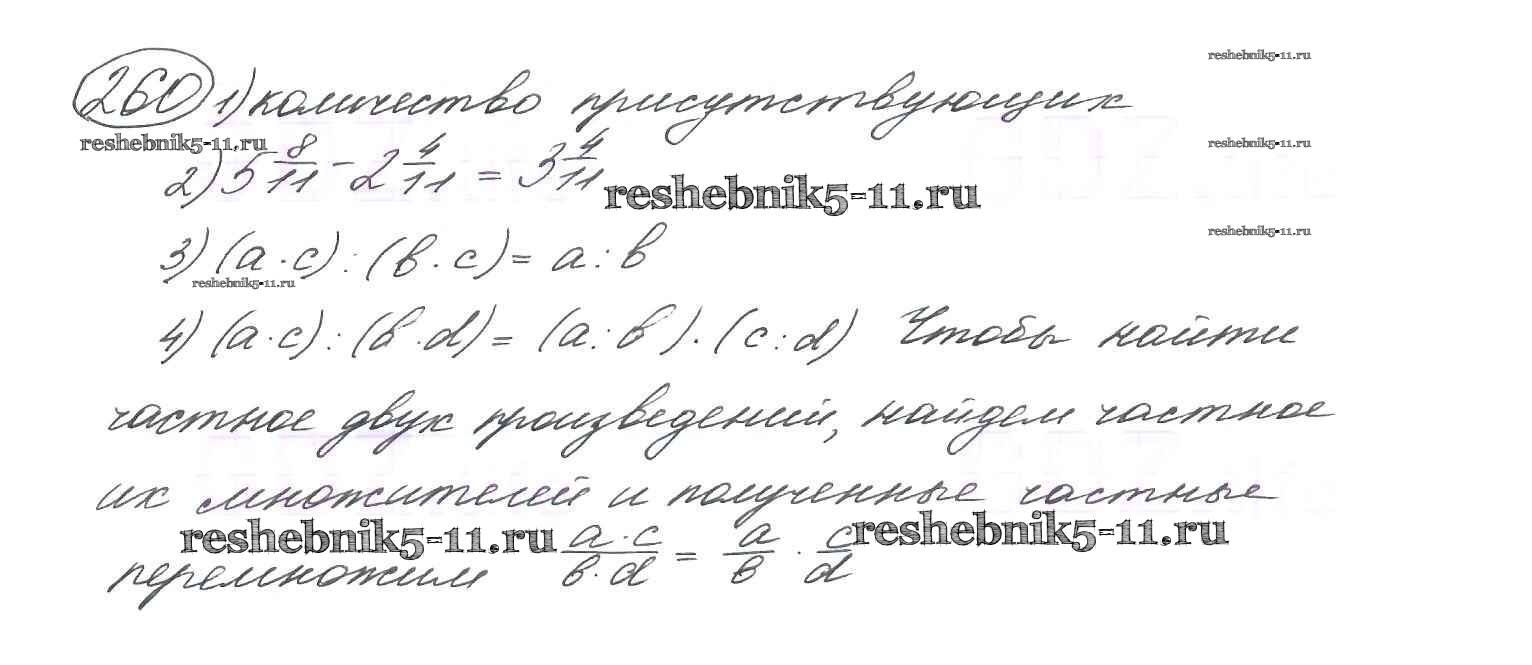 reshebnik5-11.ru
260 1) количество присутствующих
reshebnik5-11.ru
reshebnik5-11.ru
2) 5 8/11 - 2 4/11 = 3 4/11
reshebnik5-11.ru
reshebnik5-11.ru
3) (a · c) : (b · c) = a : b
reshebnik5-11.ru
4) (a · c) : (b · d) = (a : b) · (c : d) Чтобы найти
частное двух произведений, найдем частное
их множителей и полученные частные
reshebnik5-11.ru
reshebnik5-11.ru
перемножим a · c / b · d = a/b · c/d